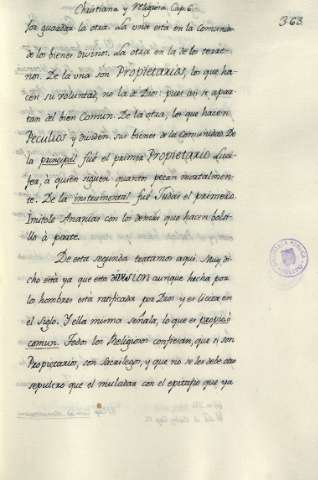 Christiana y Religiosa Cap. 6
363
por guardar la otra. La una está en la Comunidad
de los bienes divinos. La otra en la de los terre-
nos. De la una son Propietarios, los que ha-
cen su voluntad, no la de Dios: pues asi se apar-
tan del bien Comun. De la otra, los que hacen
Peculios y dividen sus bienes de la Comunidad. De
la principal fué el primer Propietario Luci-
fer, à quien siguen quantos pecan mortalmen-
te. De la instrumental fué Judas el primero.
Imitole Ananias con los demas que hacen bolsi-
llo à parte.
De esta segunda tratamos aqui. Muy di-
cho está ya que esta DIVISION aunque hecha por
los hombres está ratificada por Dios y es licita en
el Siglo. Y ella misma señala, lo que es propio ó
comun. Todos los Religiosos confiesan, que si son
Propietarios, son sacrilegos, y que no se les debe otro
sepulcro que el muladar con el epitafio que ya